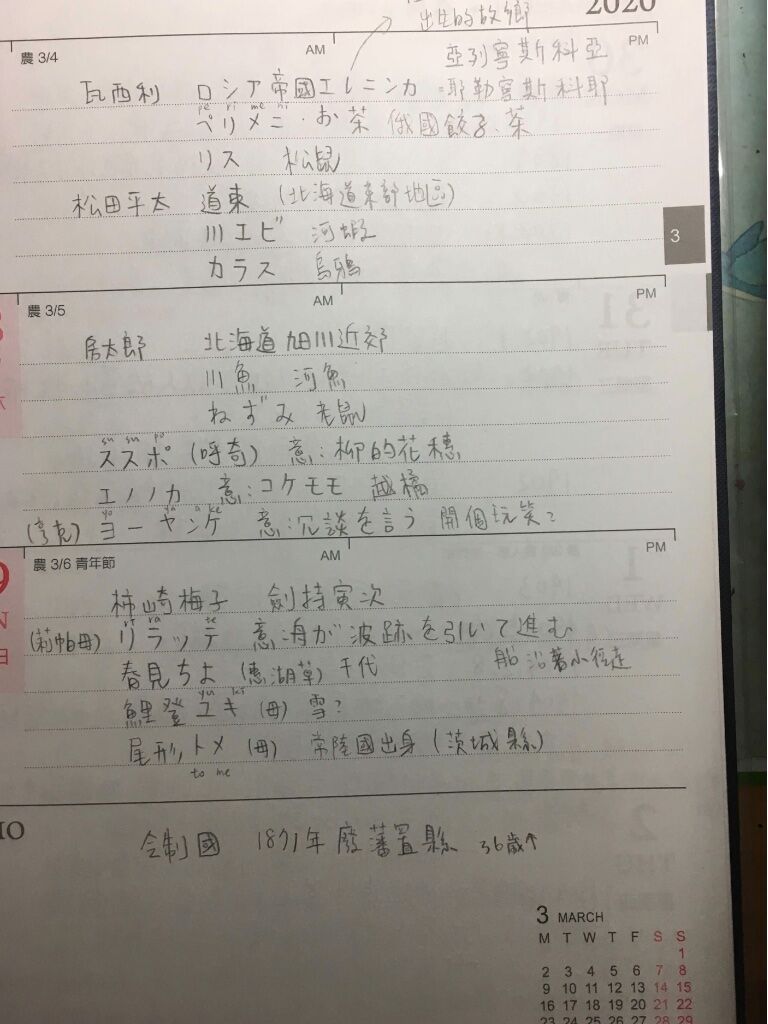 2020
出生的故鄉
農 3/4 AM PM
亞列寧斯科亞
瓦西利 ロシア帝國エレニンカ =耶勒寧斯科耶
pe ri me ni
ペリメニ・お茶 俄國餃子、茶
リス 松鼠
松田平太 道東 (北海道東部地區)
川エビ 河蝦
カラス 烏鴉
3
農 3/5 AM PM
房太郎 北海道旭川近郊
川魚 河魚
ねずみ 老鼠
su su po
ススポ (呼奇) 意:柳的花穗
エノノカ 意:コケモモ 越橘
yo ya n ke
(亨克) ヨーヤンケ 意:冗談を言う 開個玩笑?
農 3/6 青年節 AM PM
柿崎梅子 劍持寅次
ri ra te
(莉帕母) リラッテ 意舟が波跡を引いて進む
船沿著小徑走
春見ちよ (惠湖草) 千代
yu ki
鯉登ユキ (母) 雪?
尾形,トメ (母) 常陸國出身 (茨城縣)
to me
令制國 1871年廢藩置縣 36歲↑
3 MARCH
M T W T F S S
1
2 3 4 5 6 7 8
9 10 11 12 13 14 15
16 17 18 19 20 21 22
23 24 25 26 27 28 29